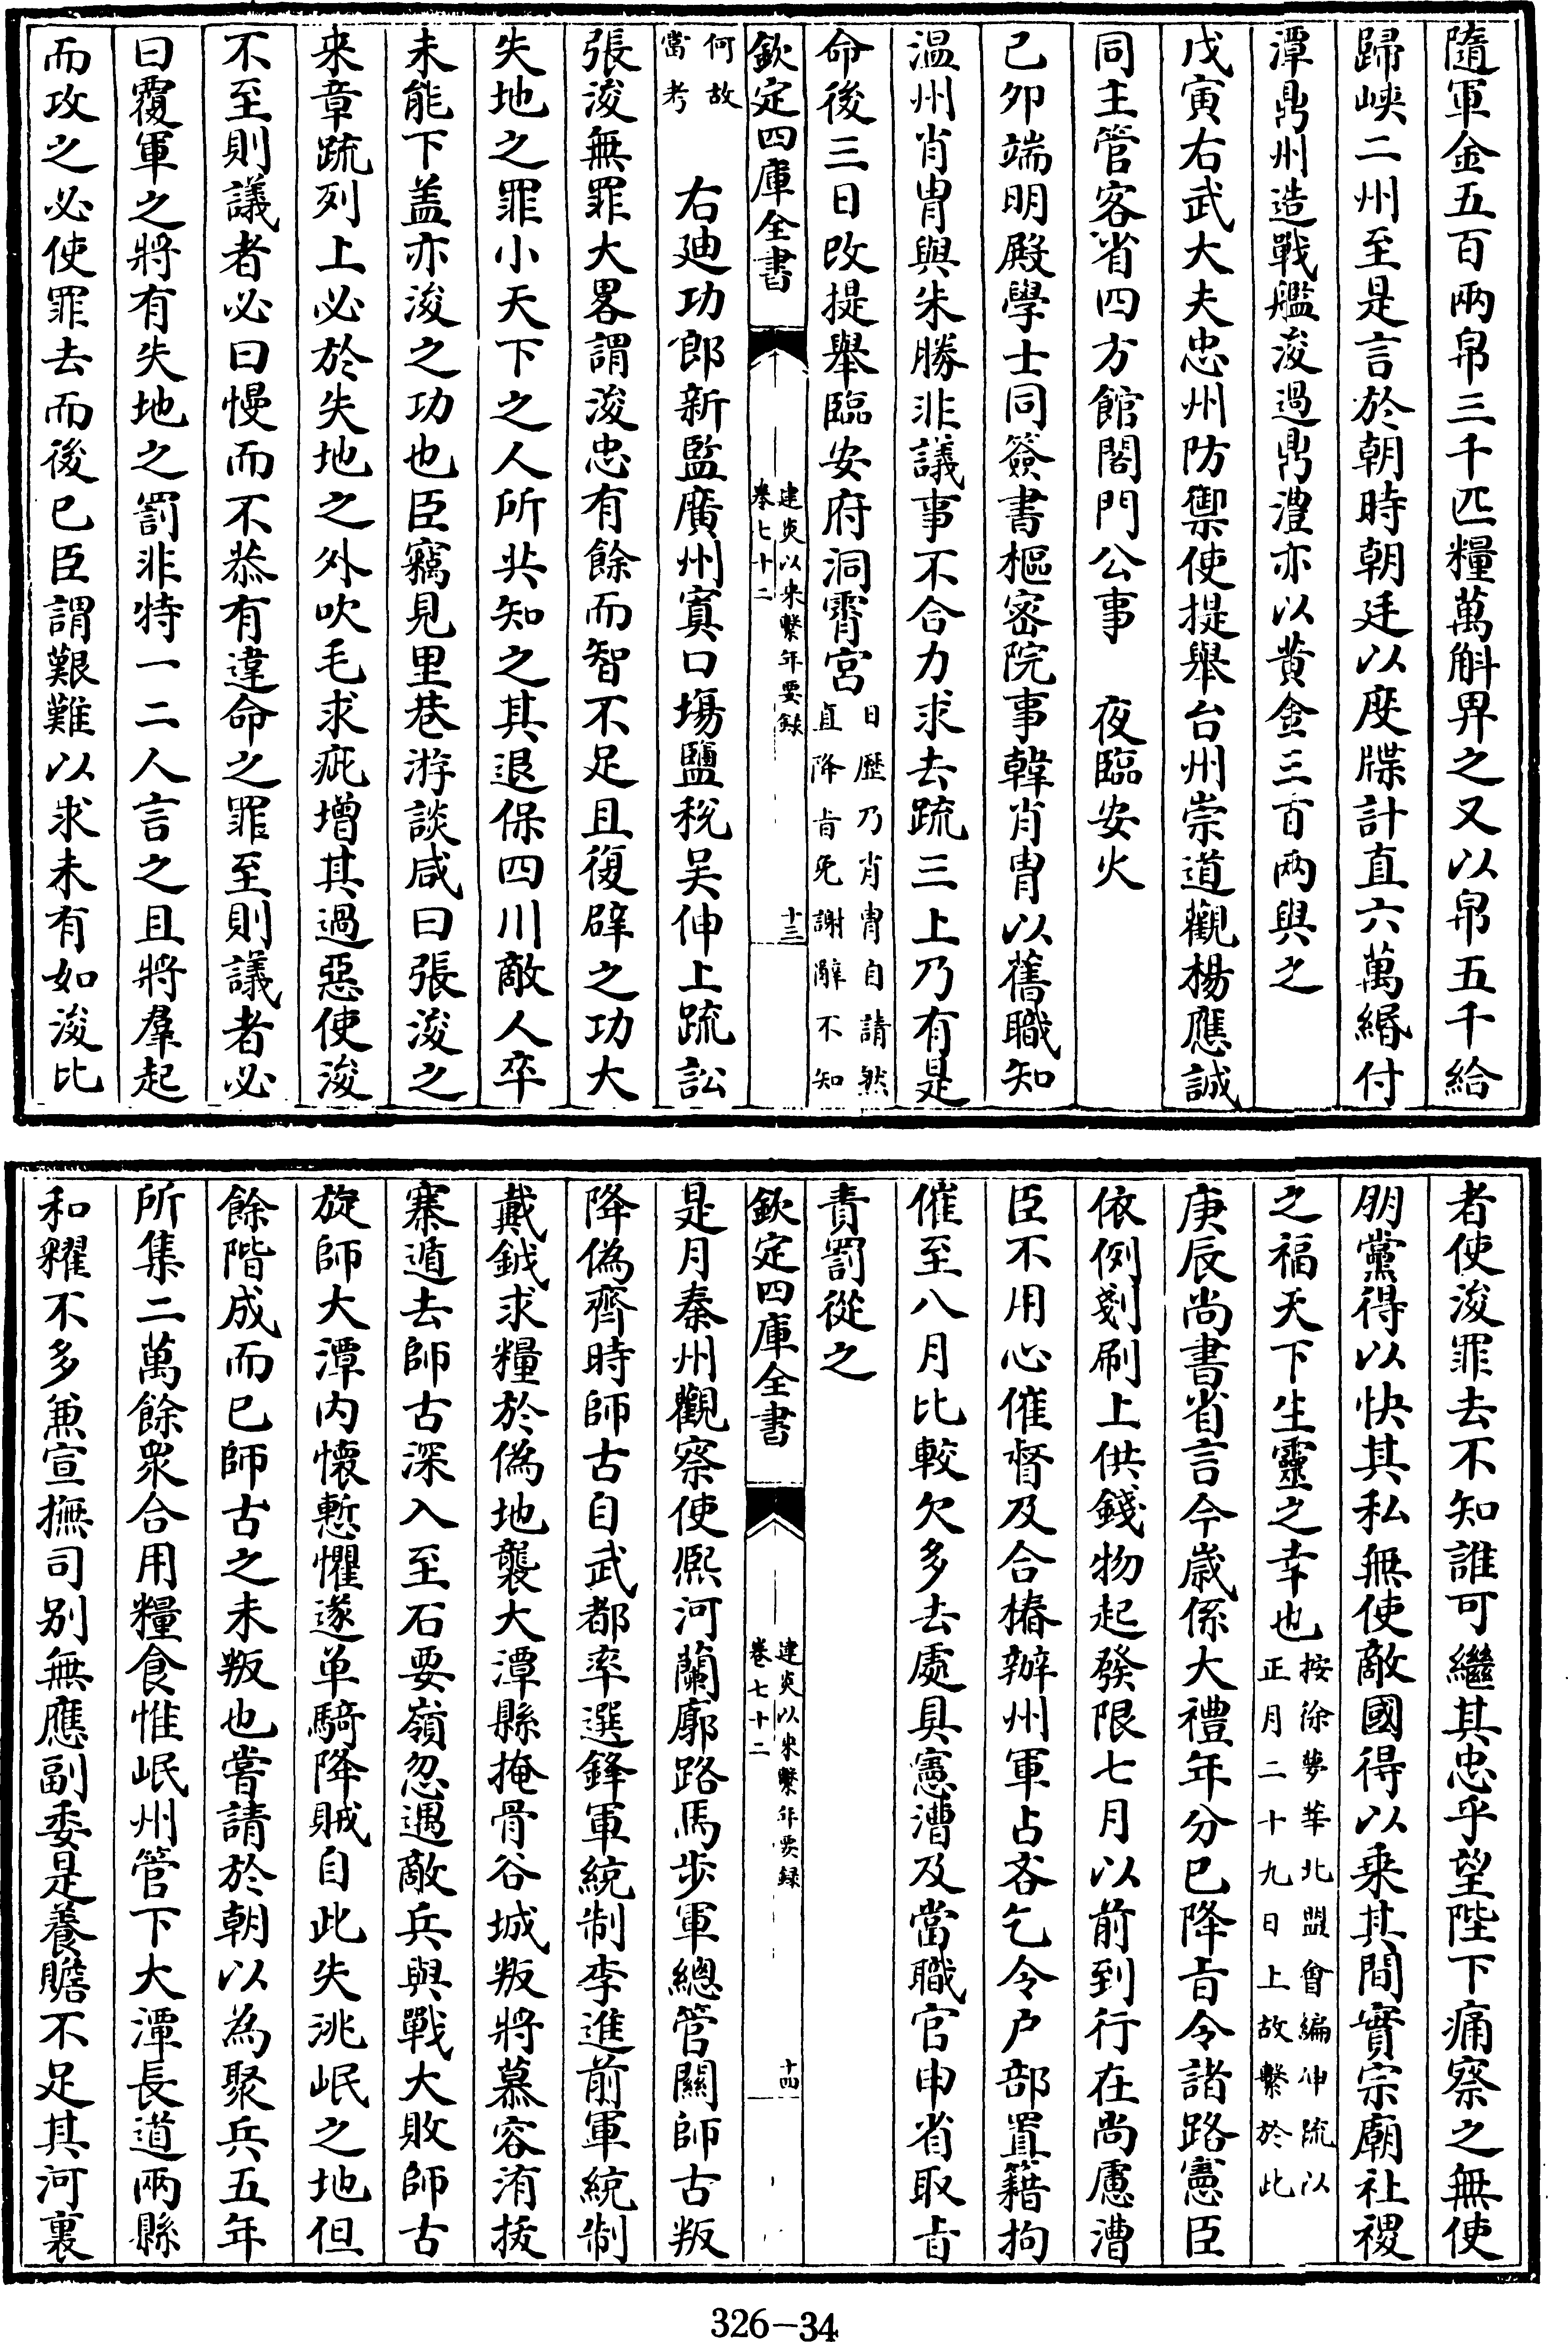 隨軍金五百兩帛三千匹糧萬斛畀之又以帛五千給
歸峽二州至是言於朝時朝廷以度牒計直六萬緡付
潭鼎州造戰艦浚過鼎澧亦以黄金三百兩與之
戊寅右武大夫忠州防禦使提舉台州崇道觀楊應誠
同主管客省四方館閤門公事　夜臨安火
己卯端明殿學士同簽書樞密院事韓肖胄以舊職知
温州肖胄與朱勝非議事不合力求去疏三上乃有是
命後三日改提舉臨安府洞霄宮日歴乃肖胄自請然
直降旨免謝辭不知
欽定四庫全書
建炎以來繫年要録
卷七十二
十三
何故
當考
右廸功郎新監廣州寘口塲鹽稅吴伸上疏訟
張浚無罪大畧謂浚忠有餘而智不足且復辟之功大
失地之罪小天下之人所共知之其退保四川敵人卒
未能下盖亦浚之功也臣竊見里巷游談咸曰張浚之
来章疏列上必於失地之外吹毛求疵增其過惡使浚
不至則議者必曰慢而不恭有違命之罪至則議者必
曰覆軍之將有失地之罰非特一二人言之且將羣起
而攻之必使罪去而後已臣謂艱難以求未有如浚比
者使浚罪去不知誰可繼其忠乎望陛下痛察之無使
朋黨得以快其私無使敵國得以乗其間實宗廟社稷
之福天下生靈之幸也按徐夢莘北盟會編伸疏以
正月二十九日上故繫於此
庚辰尚書省言今歳係大禮年分已降旨令諸路憲臣
依例剗刷上供錢物起發限七月以前到行在尚慮漕
臣不用心催督及合樁辦州軍占吝乞令户部置籍拘
催至八月比較欠多去處具憲漕及當職官申省取旨
責罰從之
欽定四庫全書
建炎以來繫年要録
卷七十二
十四
是月秦州觀察使熙河蘭廓路馬步軍總管關師古叛
降偽齊時師古自武都率選鋒軍統制李進前軍統制
戴鉞求糧於偽地襲大潭縣掩骨谷城叛將慕容洧拔
寨遁去師古深入至石要嶺忽遇敵兵與戰大敗師古
旋師大潭内懷慙懼遂单騎降賊自此失洮岷之地但
餘階成而已師古之未叛也嘗請於朝以為聚兵五年
所集二萬餘衆合用糧食惟岷州管下大潭長道兩縣
和糴不多兼宣撫司别無應副委是養贍不足其河裏
326-34